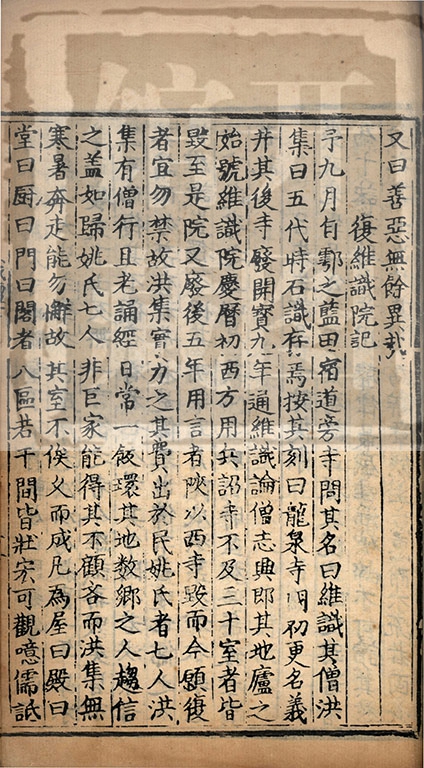 又曰善惡無餘異哉
復維識院記
予九月自鄠之藍田宿道旁寺問其名曰維識其僧洪
集曰五代時石識存焉按其刻曰龍泉寺初更名義
井其後寺廢開寶九年通維識論僧志典即其地廬之
始號維識院慶曆初西方用兵詔寺不及三十室者皆
毀至是院又廢後五年用言者陜以西寺毀而今願復
者宜勿禁故洪集實力之其費出於民姚氏者七人洪
集有僧行且老誦經日常一飯環其地数鄉之人趨信
之盖如歸姚氏七人非巨家能得其不顧吝而洪集無
寒暑奔走能勿懈故其室不俟乆而成凡為屋曰殿曰
堂曰厨曰門曰閣者八區若干間皆壯宏可觀噫儒詆